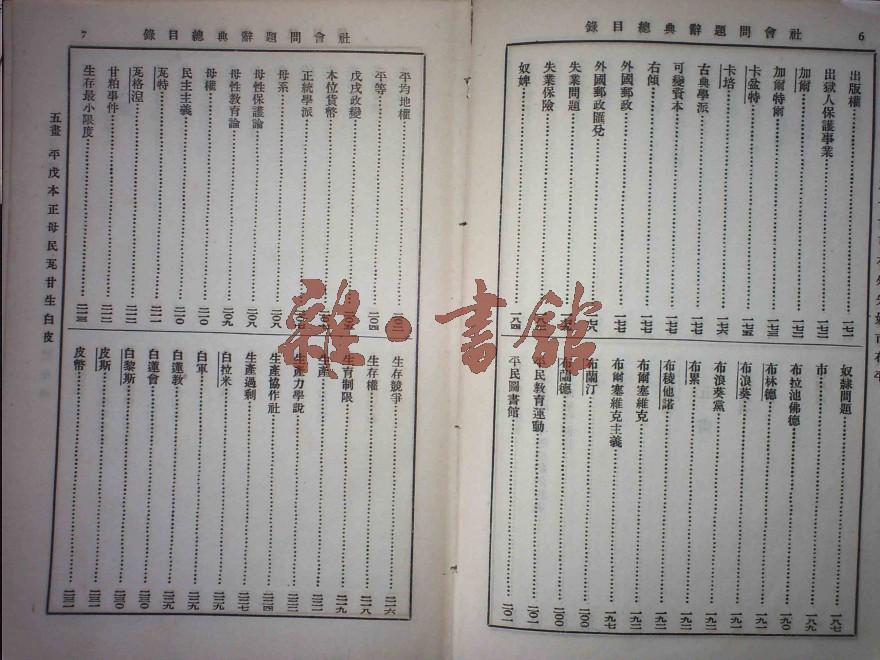 社會問題辭典總目錄 6
出版權 一七一
出獄人保護事業
加爾 一七二
加爾特爾 一七三
卡盆特 一七五
卡培 一七六
古典學派 一七七
可變資本 一七七
右傾 一七七
外國郵政 一七七
外國郵政匯兌
失業問題
失業保險
奴婢 一八四
奴隸問題 一八七
市 一八九
布拉池佛德 一九〇
布林德 一九一
布浪葵 一九二
布浪葵黨 一九二
布累 一九二
布稜他諾
布爾塞維克
布爾塞維克主義 一九七
布蘭汀 二〇〇
布蘭德 二〇〇
平民教育運動 二〇一
平民圖書館 二〇一
社會問題辭典總目錄 7
平均地權
平等 二〇四
戊戌政變
本位貨幣
正統學派
母系 二〇八
母性保護論 二〇八
母性教育論 二〇九
母權 二一〇
民主主義 二一〇
瓦特 二一一
瓦格涅 二一二
甘粕事件 二一二
生存最小限度 二一三
生存競爭 二一六
生存權 二一八
生育制限 二一九
生產 二二一
生產力學說
生產協作社 二二四
生產過剩 二二七
白拉米 二二九
白軍 二二九
白蓮教 二二九
白蓮會 二三〇
白黎斯 二三〇
皮斯 二三一
皮幣 二三一
五畫 平戊本正母民瓦甘生白皮
雜·書館